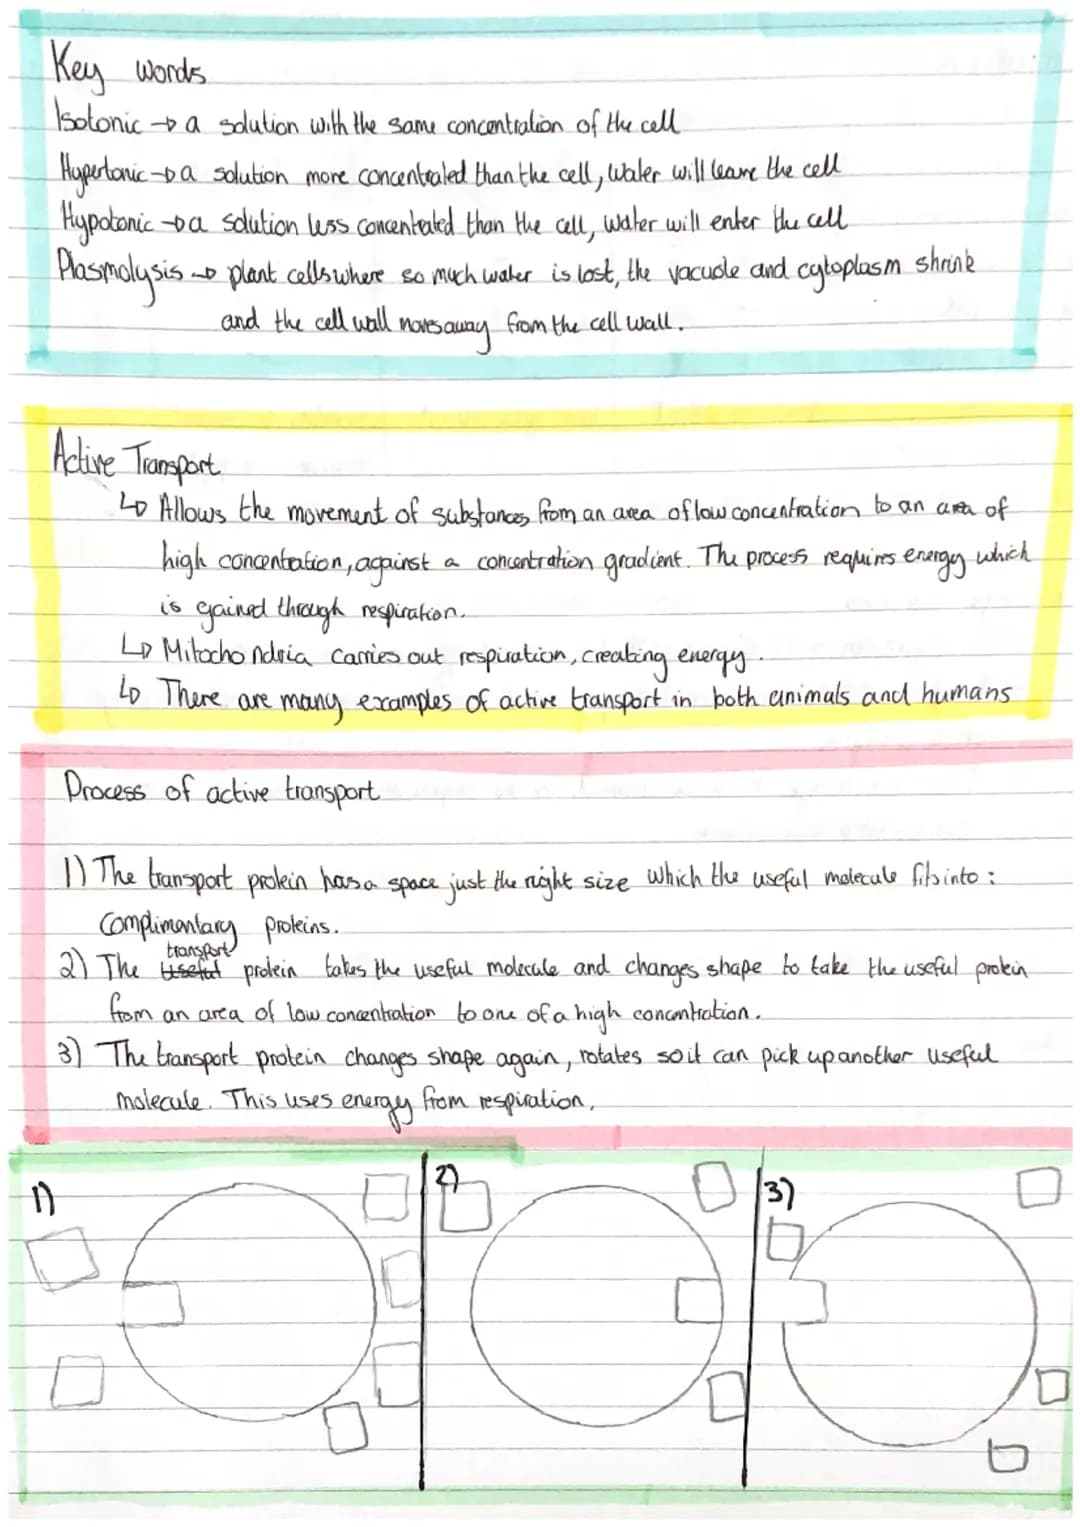 Key words
Isotonic → a solution with the same concentration of the cell
Hypertonic → a solution more concentrated than the cell, water will leave the cell
Hypotonic → a solution less concentrated than the cell, water will enter the cell
Plasmolysis → plant cells where so much water is lost, the vacuole and cytoplasm shrink
and the cell wall moves away from the cell wall.
Active Transport
↳ Allows the movement of substances from an area of low concentration to an area of
high concentration, against a concentration gradient. The process requires energy which
is gained through respiration.
↳ Mitochondria carries out respiration, creating energy.
↳ There are many examples of active transport in both animals and humans
Process of active transport
1) The transport protein has a space just the right size which the useful molecule fits into :
Complimentary proteins.
transport
2) The useful protein takes the useful molecule and changes shape to take the useful protein
from an area of low concentration to one of a high concentration.
3) The transport protein changes shape again, rotates so it can pick up another useful
molecule. This uses energy from respiration.
1)
2)
3)